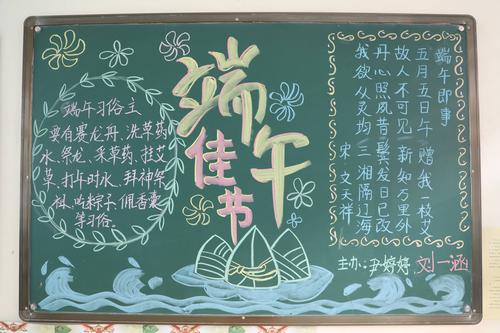 端午
佳节
端午习俗主
要有赛龙舟、洗草药
水、祭龙、采草药、挂艾
草、打午时水、拜神祭
祖、吃粽子、佩香囊
等习俗。
端午即事
五月五日午 赠我一枝艾
故人不可见 新知万里外
丹心照夙昔 鬓发日已改
我欲从灵均 三湘隔辽海
宋·文天祥
主办:尹婷婷.刘一涵